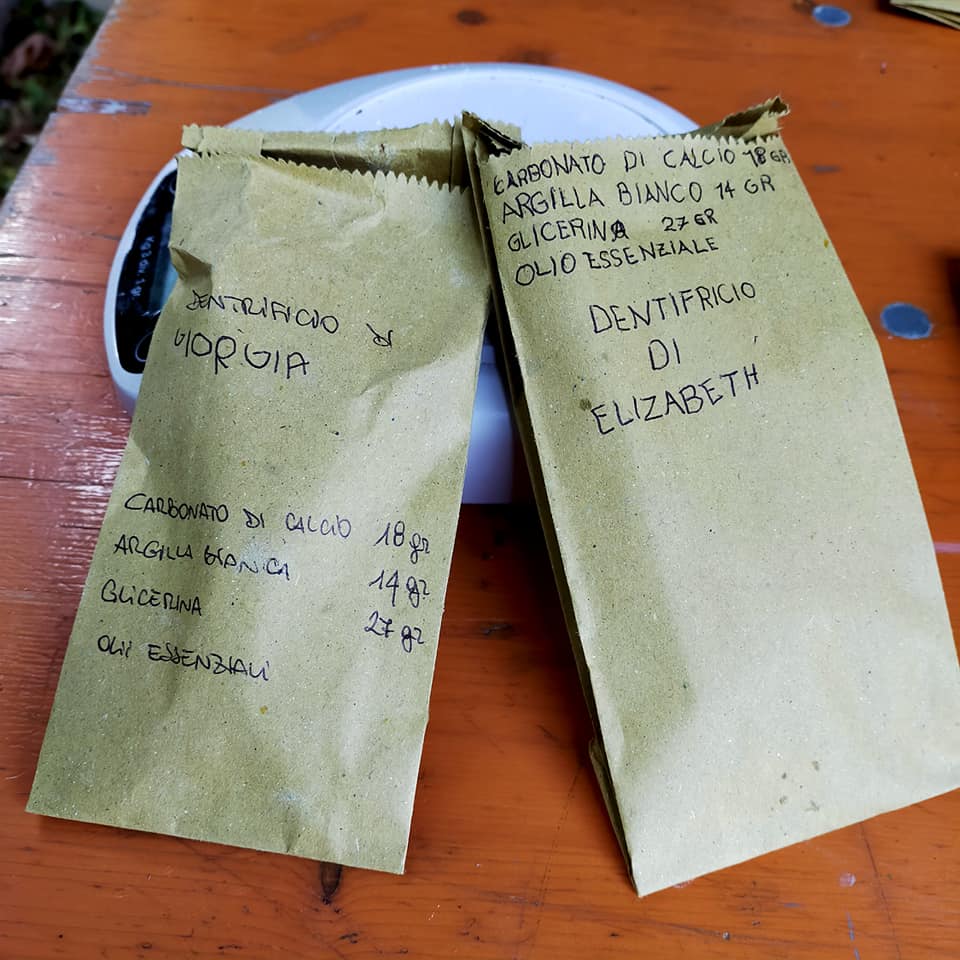 DENTRIFICIO DI
GIORGIA
CARBONATO DI CALCIO 18 gr
ARGILLA BIANCA 14 gr
GLICERINA 27 gr
OLII ESSENZIALI
CARBONATO DI CALCIO 18 GR
ARGILLA BIANCO 14 GR
GLICERINA 27 GR
OLIO ESSENZIALE
DENTIFRICIO
DI
ELIZABETH